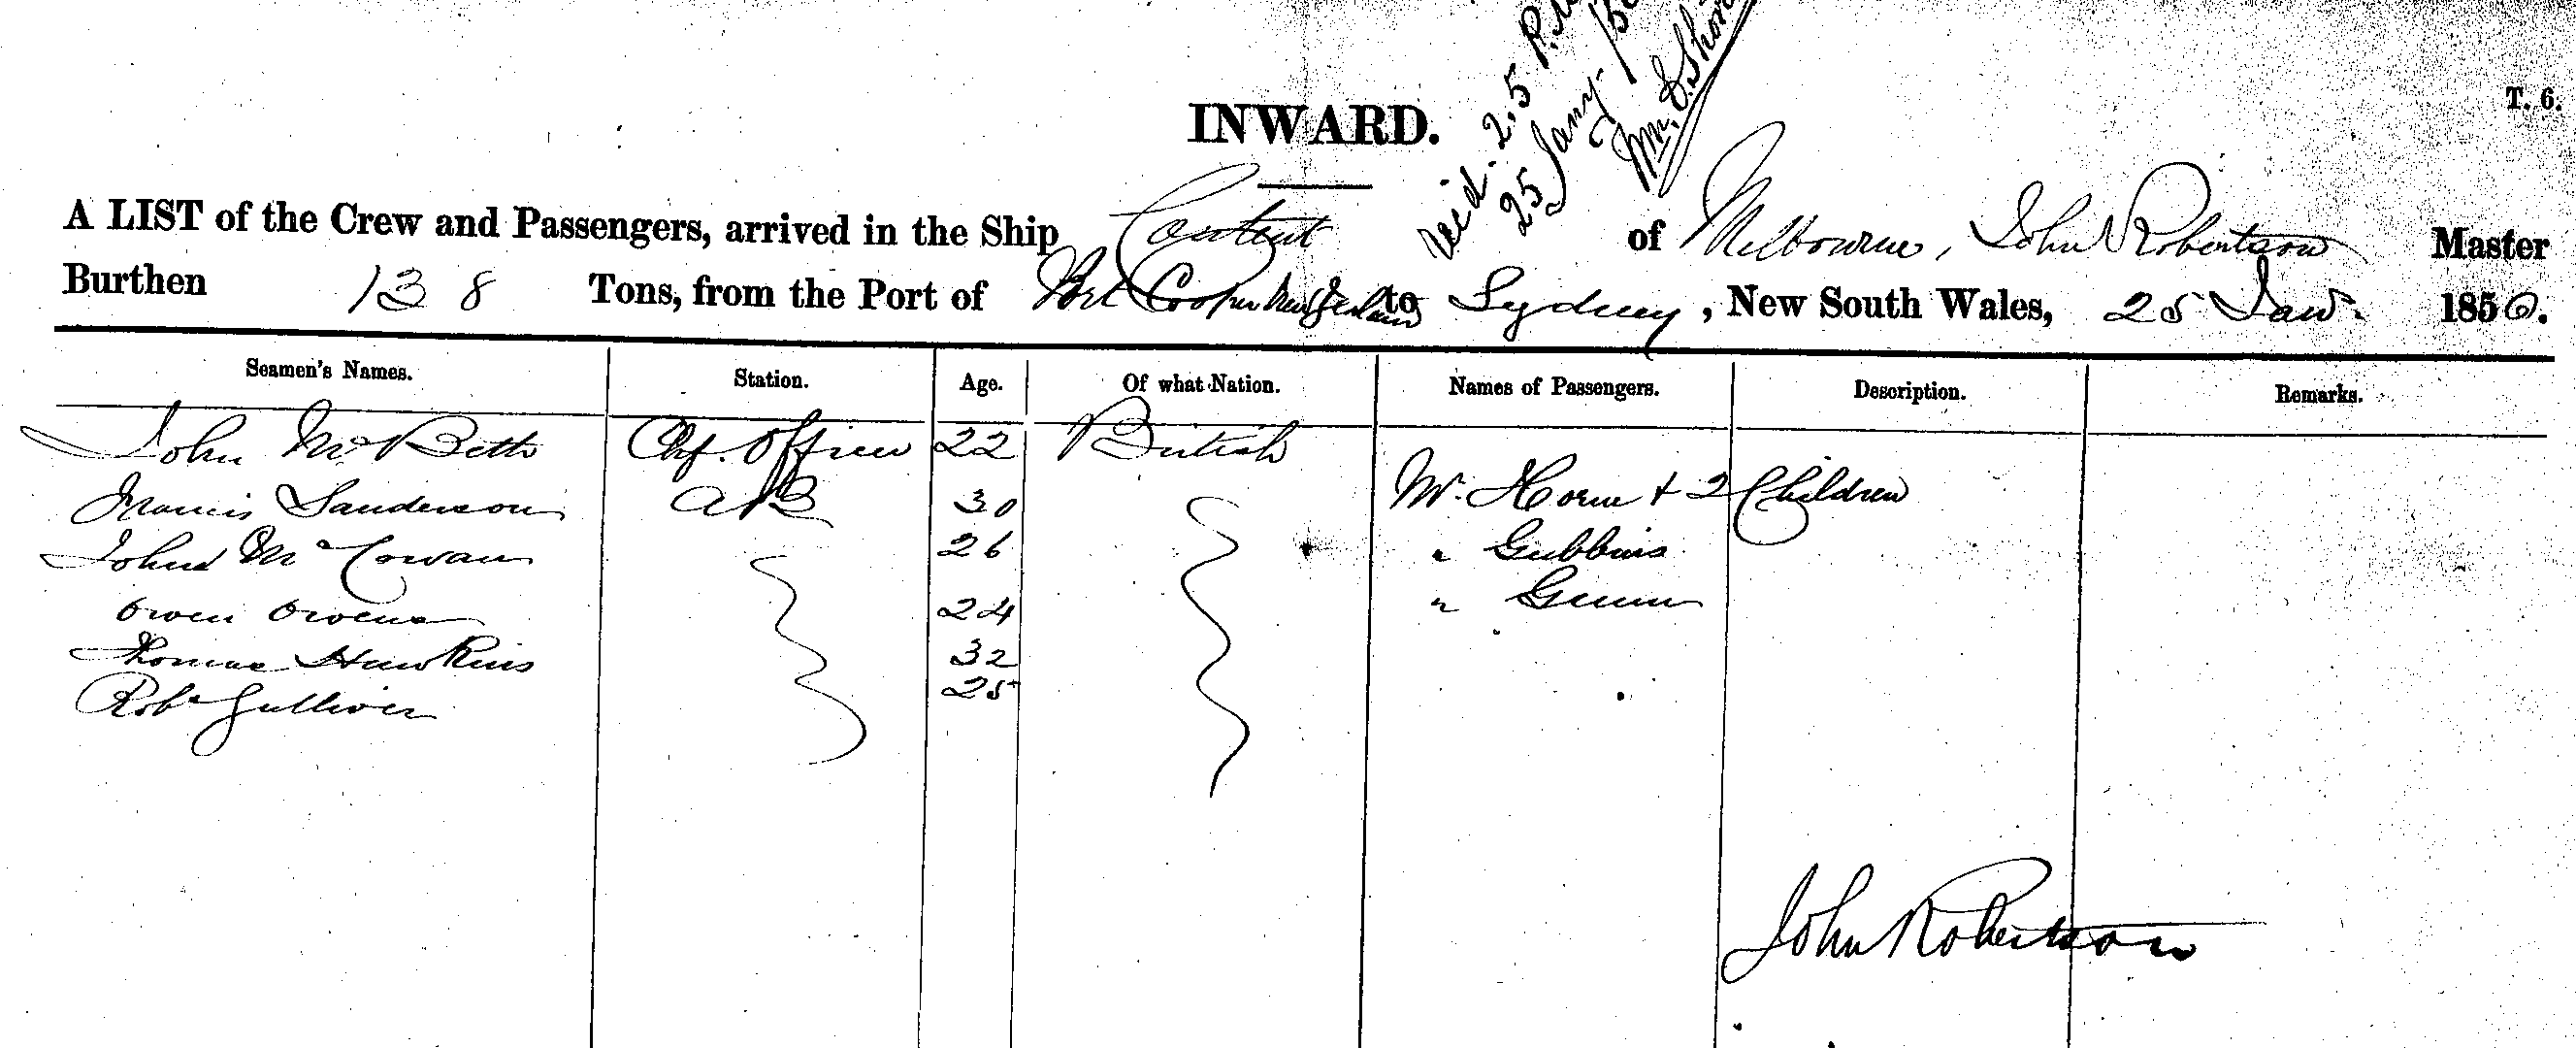 T. 6.
INWARD.
25 Jany
A LIST of the Crew and Passengers, arrived in the Ship Content of Melbourne, John Robertson Master
Burthen 138 Tons, from the Port of Port Cooper New Zealand to Sydney, New South Wales, 25 Jan. 1856.
Seamen's Names. Station. Age. Of what Nation. Names of Passengers. Description. Remarks.
John McBeth Chf. Officer 22 British
Francis Sanderson AB 30 Mr. Horne + 2 Children
John McCowan 26 " Gubbins
Owen Owens 24 "
Thomas Hawkins 32
Robt Gulliver 25
John Robertson